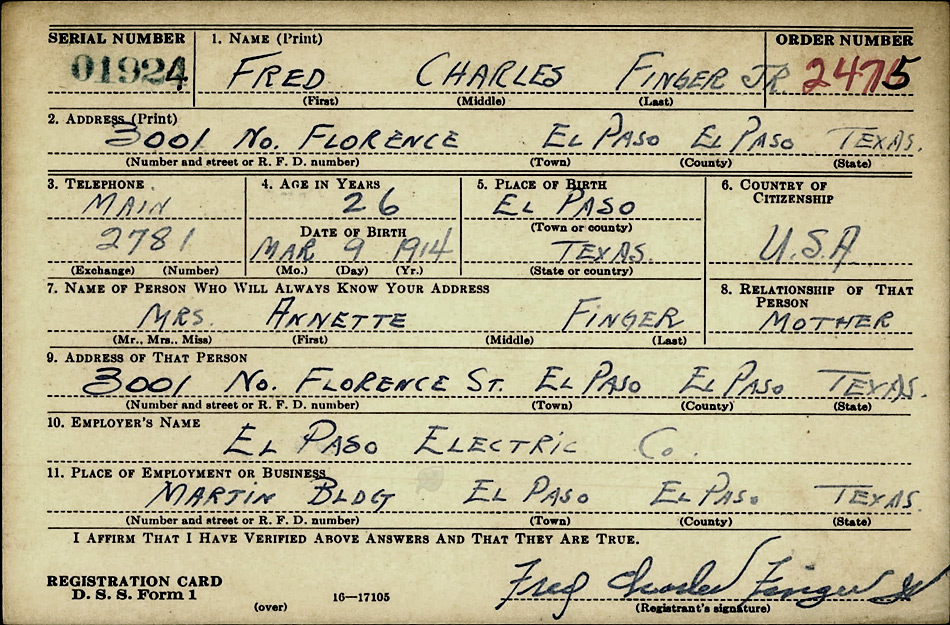 SERIAL NUMBER 1. NAME (Print) ORDER NUMBER
01924 FRED CHARLES FINGER JR. 2475
(First) (Middle) (Last)
2. ADDRESS (Print)
3001 NO. FLORENCE EL PASO EL PASO TEXAS.
(Number and street or R. F. D. number) (Town) (County) (State)
3. TELEPHONE 4. AGE IN YEARS 5. PLACE OF BIRTH 6. COUNTRY OF CITIZENSHIP
MAIN 26 EL PASO
DATE OF BIRTH (Town or county)
2781 MAR 9 1914 TEXAS. U.S.A.
(Exchange) (Number) (Mo.) (Day) (Yr.) (State or country)
7. NAME OF PERSON WHO WILL ALWAYS KNOW YOUR ADDRESS 8. RELATIONSHIP OF THAT PERSON
MRS. ANNETTE FINGER MOTHER
(Mr., Mrs., Miss) (First) (Middle) (Last)
9. ADDRESS OF THAT PERSON
3001 NO. FLORENCE ST. EL PASO EL PASO TEXAS.
(Number and street or R. F. D. number) (Town) (County) (State)
10. EMPLOYER'S NAME
EL PASO ELECTRIC CO.
11. PLACE OF EMPLOYMENT OR BUSINESS
MARTIN BLDG EL PASO EL PASO TEXAS
(Number and street or R. F. D. number) (Town) (County) (State)
I AFFIRM THAT I HAVE VERIFIED ABOVE ANSWERS AND THAT THEY ARE TRUE.
Fred Charles Finger Jr
REGISTRATION CARD
D. S. S. Form 1 (over) 16—17105 (Registrant's signature)